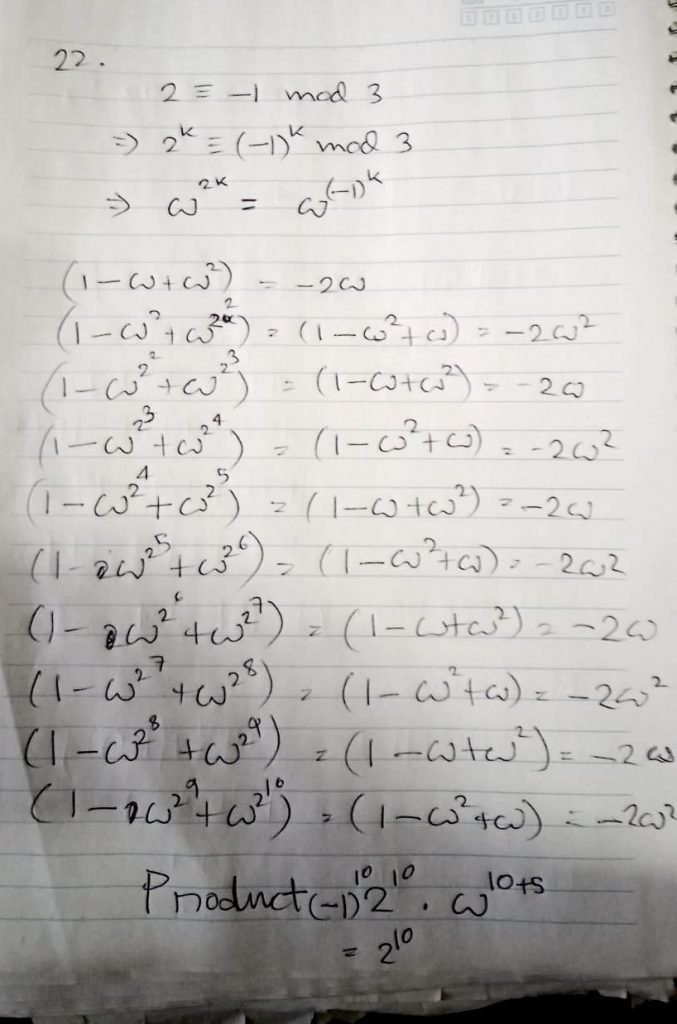 22.
2 ≡ -1 mod 3
⇒ 2^k ≡ (-1)^k mod 3
⇒ ω^{2^k} = ω^{(-1)^k}
(1-ω+ω²) = -2ω
(1-ω²+ω^{2²}) = (1-ω²+ω) = -2ω²
(1-ω^{2²}+ω^{2³}) = (1-ω+ω²) = -2ω
(1-ω^{2³}+ω^{2⁴}) = (1-ω²+ω) = -2ω²
(1-ω^{2⁴}+ω^{2⁵}) = (1-ω+ω²) = -2ω
(1-ω^{2⁵}+ω^{2⁶}) = (1-ω²+ω) = -2ω²
(1-ω^{2⁶}+ω^{2⁷}) = (1-ω+ω²) = -2ω
(1-ω^{2⁷}+ω^{2⁸}) = (1-ω²+ω) = -2ω²
(1-ω^{2⁸}+ω^{2⁹}) = (1-ω+ω²) = -2ω
(1-ω^{2⁹}+ω^{2¹⁰}) = (1-ω²+ω) = -2ω²
Product (-1)^{10} 2^{10} . ω^{10+5}
= 2^{10}